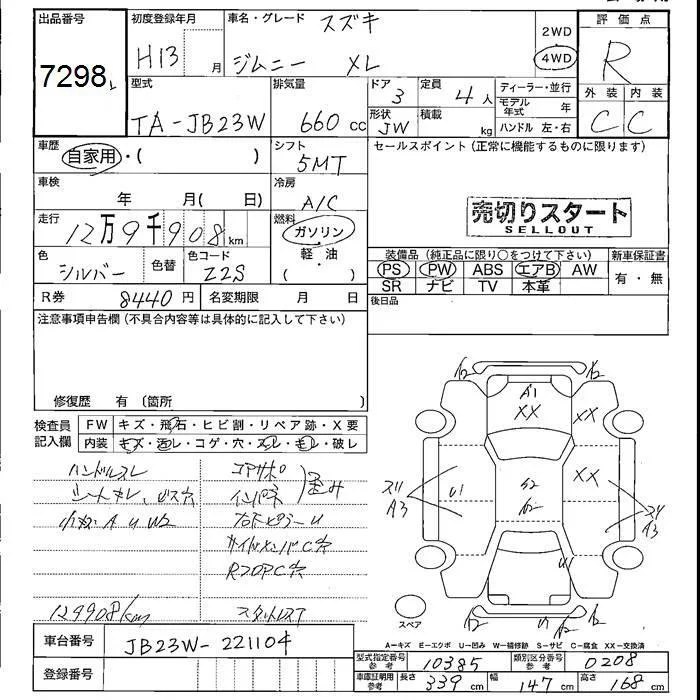 出品番号
7298
初度登録年月
H13 月
車名・グレード
スズキ
ジムニー XL
2WD
4WD
評価点
R
外装 内装
C C
型式
TA-JB23W
排気量
660 cc
ドア
3
定員
4人
形状
JW
積載
kg
ディーラー・並行
モデル年式 年
ハンドル 左・右
車歴
自家用・( )
シフト
5MT
セールスポイント(正常に機能するものに限ります)
車検
年 月( 日)
冷房
A/C
売切りスタート
SELLOUT
走行
12万9千908km
燃料
ガソリン
軽・油
( )
色
シルバー
色替
色コード
Z2S
装備品(純正品に限り○をつけて下さい)
PS PW ABS エアB AW
SR ナビ TV 本革
新車保証書
有・無
R券
8440円
名変期限 月 日
後日品
注意事項申告欄(不具合内容等は具体的に記入して下さい)
修復歴 有(箇所 )
検査員記入欄
FW キズ・飛石・ヒビ割・リペア跡・X要
内装 キズ・汚レ・コゲ・穴・スレ・モレ・破レ
ハンドルスレ
シートキレ、ビス穴
小キズ A U W2
コアサポ
インパネ
歪み
右下ピラーU
サイドメンバC穴
RフロアC穴
129908km
スタットレスT
A1
XX
XX
XX
S2
U1
U1
A2
A2
スリ
A3
スリ
A3
スペア
A-キズ E-エクボ U-凹み W-補修跡 S-サビ C-腐食 XX-交換済
車台番号
JB23W-221104
登録番号
型式指定番号
参考
10385
類別区分番号
参考
0208
車庫証明用
参考
長さ 339cm
幅 147cm
高さ 168cm